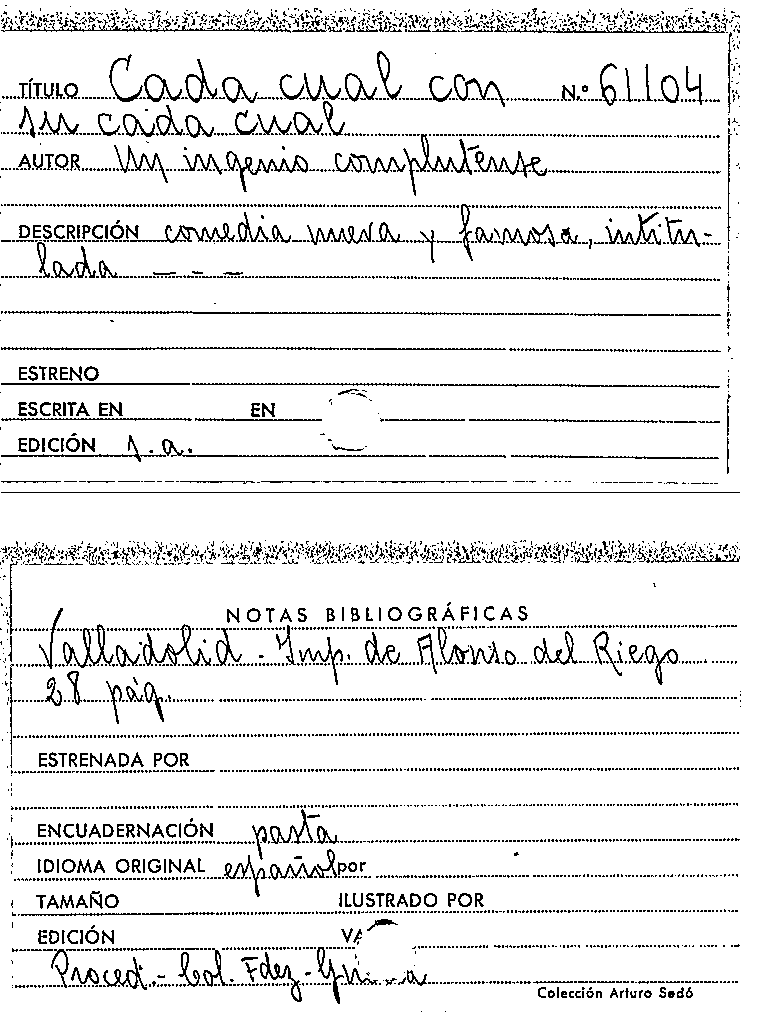 TÍTULO Cada cual con N.º 61104
su cada cual
AUTOR Un ingenio complutense
DESCRIPCIÓN comedia nueva y famosa, intitu-
lada _ _ _
ESTRENO
ESCRITA EN EN
EDICIÓN s.a.
NOTAS BIBLIOGRÁFICAS
Valladolid - Imp. de Alonso del Riego
28 pág.
ESTRENADA POR
ENCUADERNACIÓN pasta
IDIOMA ORIGINAL español por
TAMAÑO ILUSTRADO POR
EDICIÓN
Proced.- Col. Fdez-
Colección Arturo Sedó